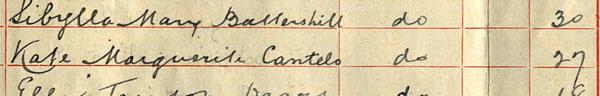 Sibylla Mary Battershill do 30
Kate Marguerite Cantelo do 27